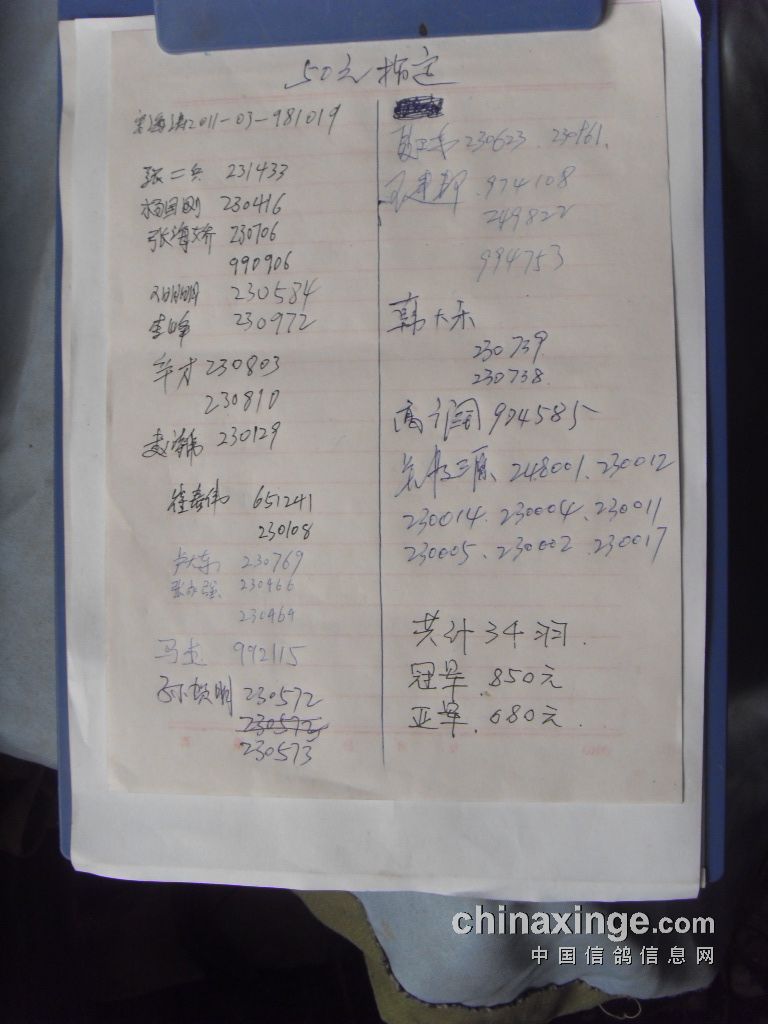 50元指定
2011-03-981019
张二兵 231433
杨国刚 230416
张海桥 230706
990906
刘明明 230584
李峰 230972
辛才 230803
230810
230129
崔春伟 651241
230108
卢大东 230769
张永强 230466
230464
马龙 992115
孙贺明 230572
230573
夏卫东 230623.230861.
王建 974108
249822
994753
韩大乐
230739
230738
高 984585
248001.230012
230014.230004.230011
230005.230002.230017
共计34羽.
冠军.850元
亚军.680元.
chinaxinge.com
中国信鸽信息网